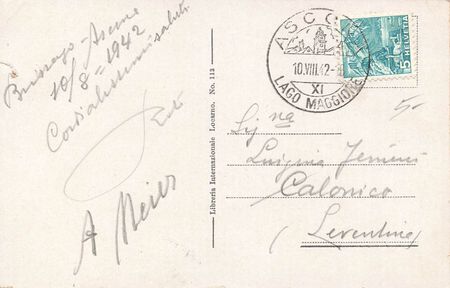 Brissago - Ascona
10/8 - 1942
Cordialissimi saluti
A Meier
Libreria Internazionale Locarno. No. 113
ASCONA
10.VIII.42
XI
LAGO MAGGIORE
HELVETIA
5
5.-
Sig na
Luigina
Calonico
(Leventina)